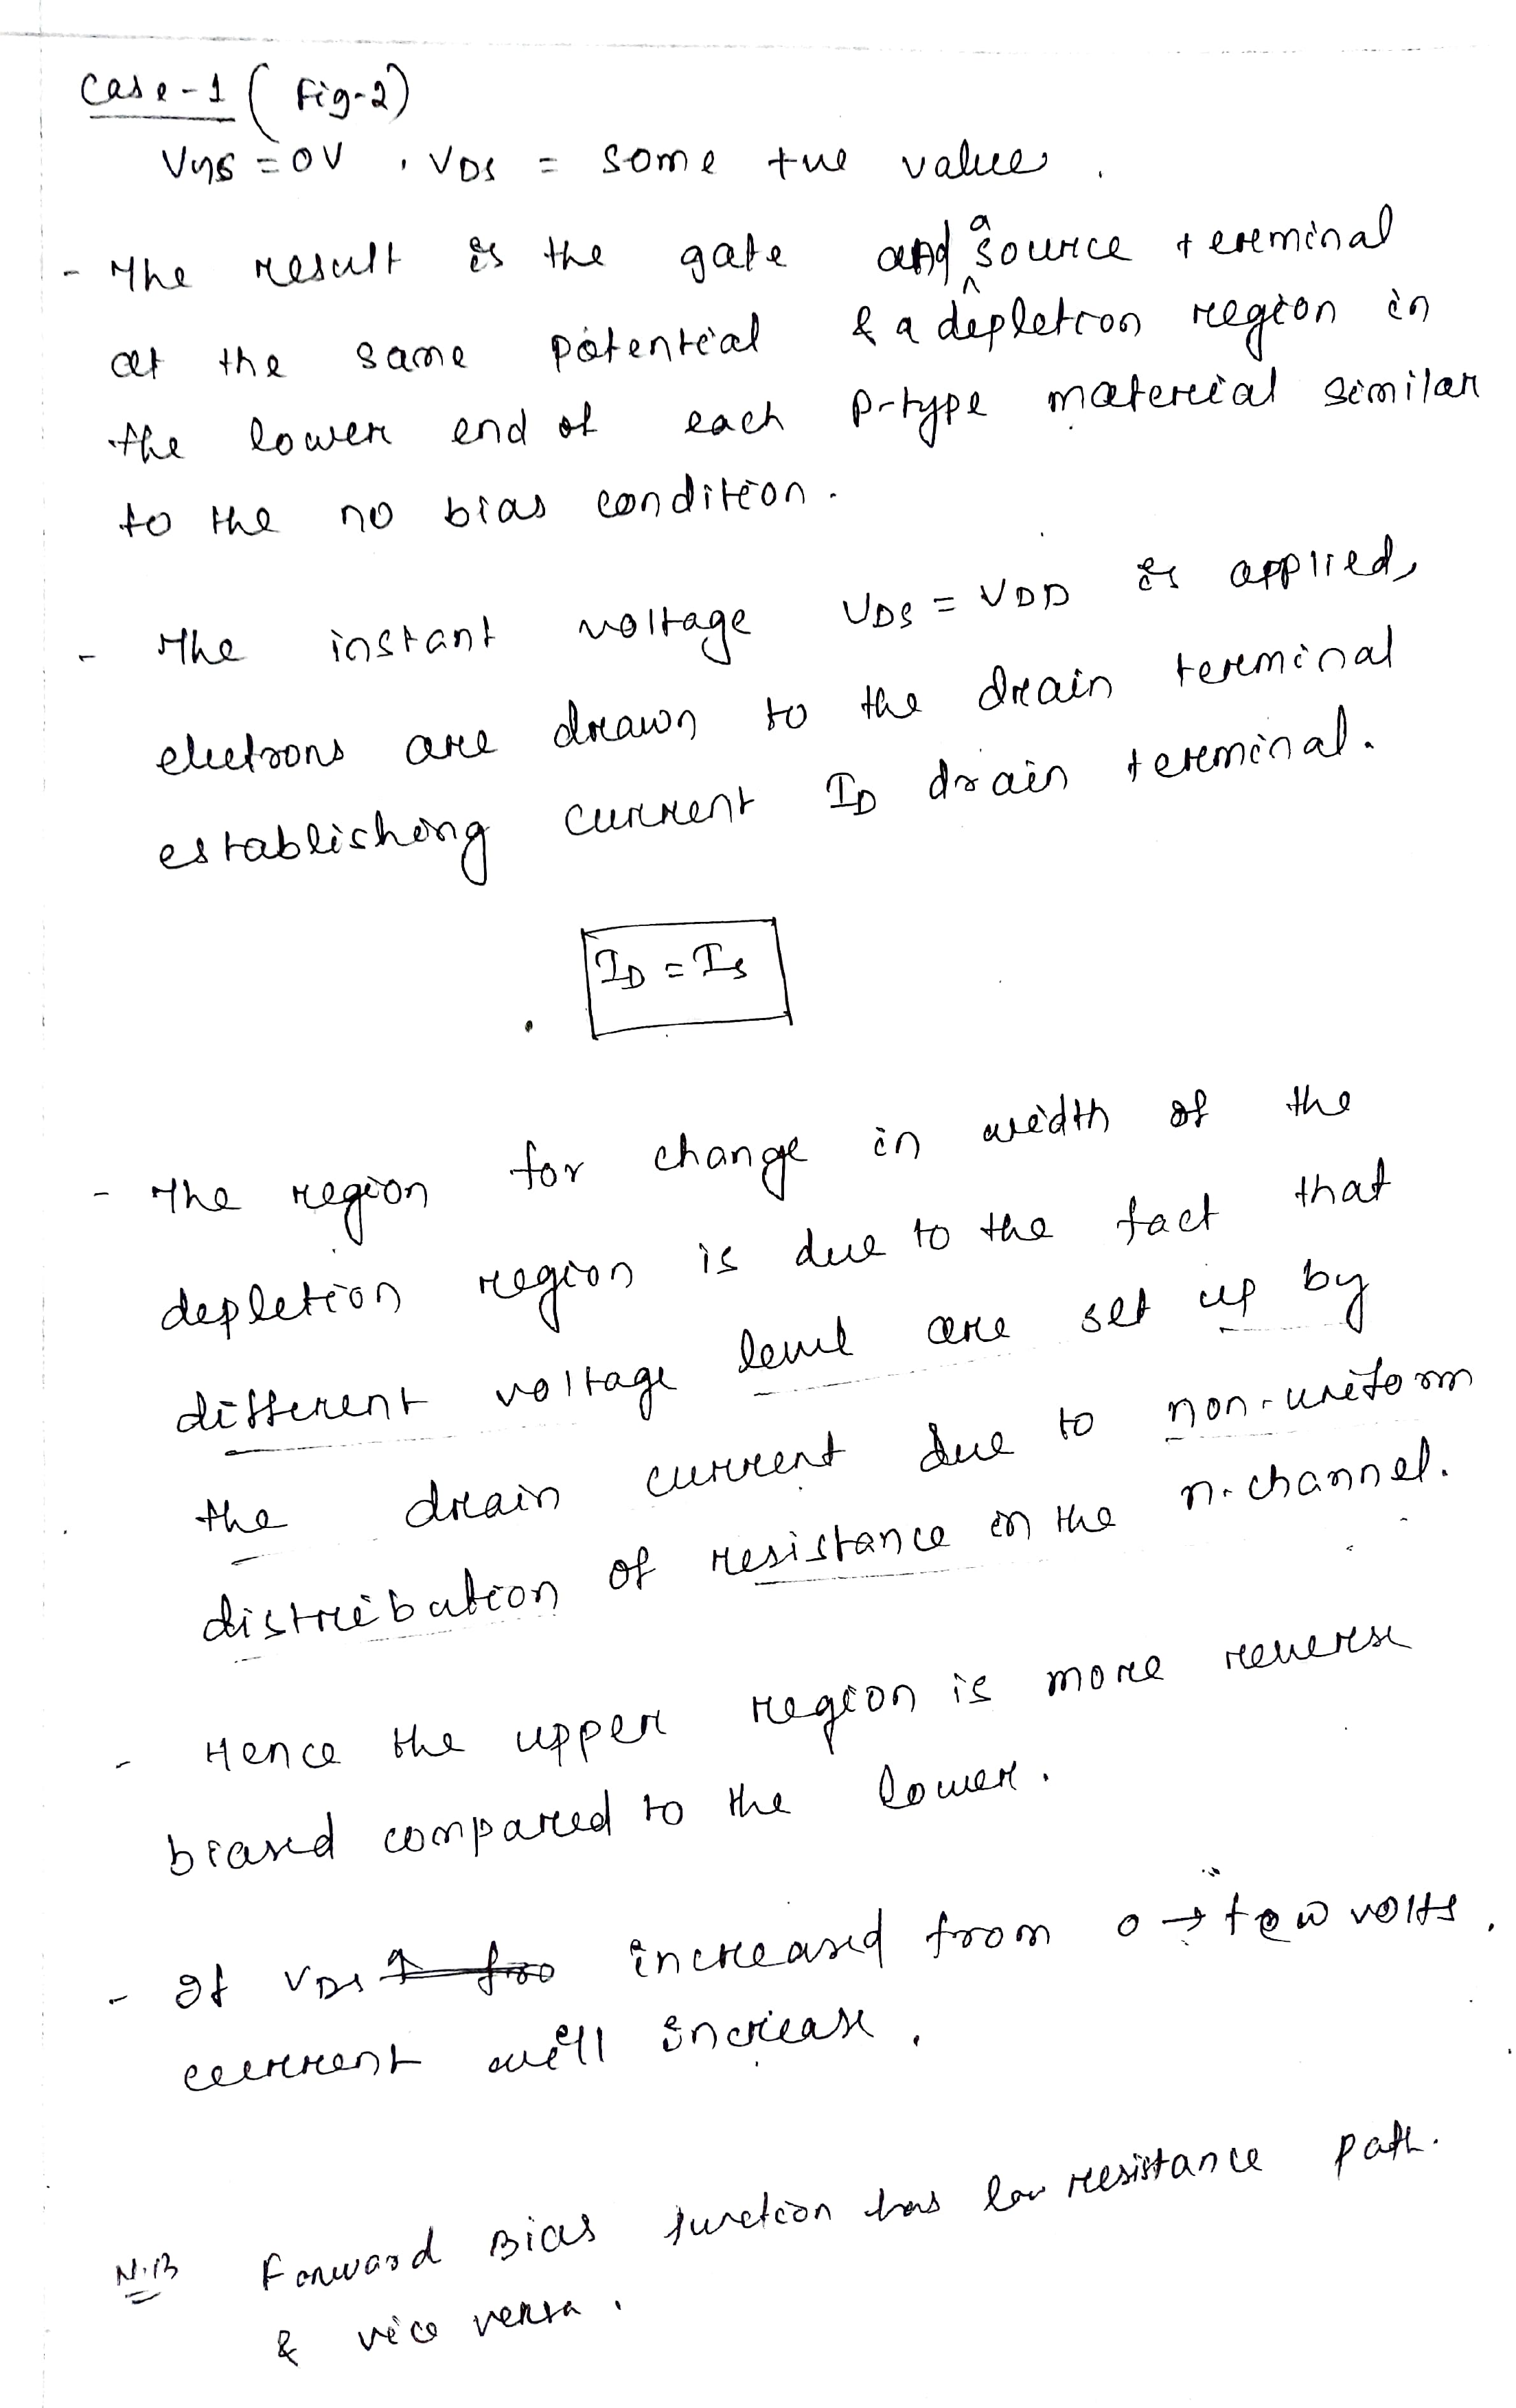 Case-1 ( Fig-2)
VGS = 0V , VDS = some +ve value.
- The result is the gate and a source terminal
at the same potential & a depletion region in
the lower end of each p-type material similar
to the no bias condition.
- The instant voltage VDS = VDD is applied,
electrons are drawn to the drain terminal
establishing current ID drain terminal.
ID = IS
- The region for change in width of the
depletion region is due to the fact that
different voltage level are set up by
the drain current due to non-uniform
distribution of resistance in the n-channel.
- Hence the upper region is more reverse
biased compared to the lower.
- If VDS ↑ fro increased from 0 → few volts,
current will increase.
N.B Forward Bias junction has low resistance path.
& vice versa.